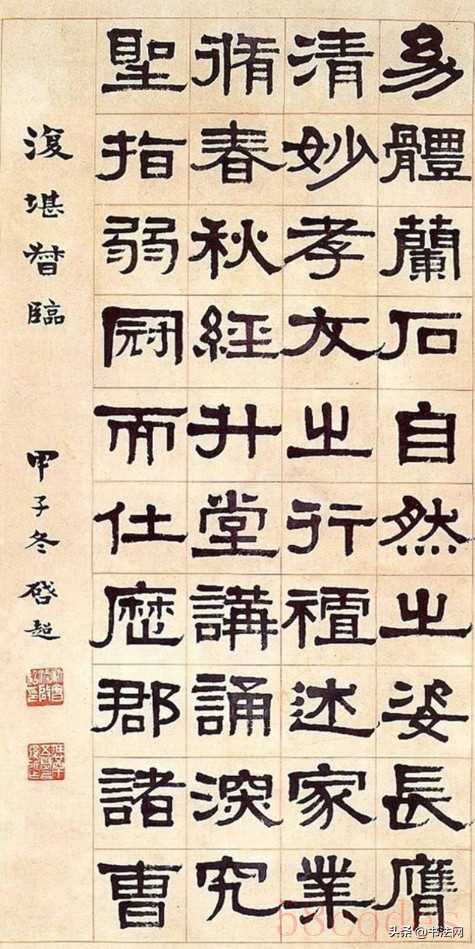 幼體蘭石自然之姿長膺
清妙孝友之行襢述家業
脩春秋經升堂講誦深究
聖指弱冠而仕歷郡諸曹
復堪督臨 甲子冬 啓超
53codes
头条 @书法网